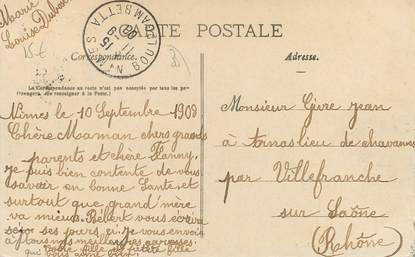 Marie
Louise Dubois
CARTE POSTALE
Correspondance.
Adresse.
La Correspondance au recto n'est pas acceptée par tous les pays
étrangers. (Se renseigner à la Poste.)
NIMES Bd GAMBETTA
Nîmes le 10 Septembre 1908
Chère Maman chers grands
parents et chère Fanny,
Je suis bien contente de vous
savoir en bonne Santé et
surtout que grand'mère
va mieux. Robert vous écrira
ses jours ci. Je vous envoi
à tous mes meilleures caresses.
Votre fille et petite fille
vous aime bien
Monsieur Givre Jean
à tornas lieu de chavanne
par Villefranche
sur Saône
(Rhône)